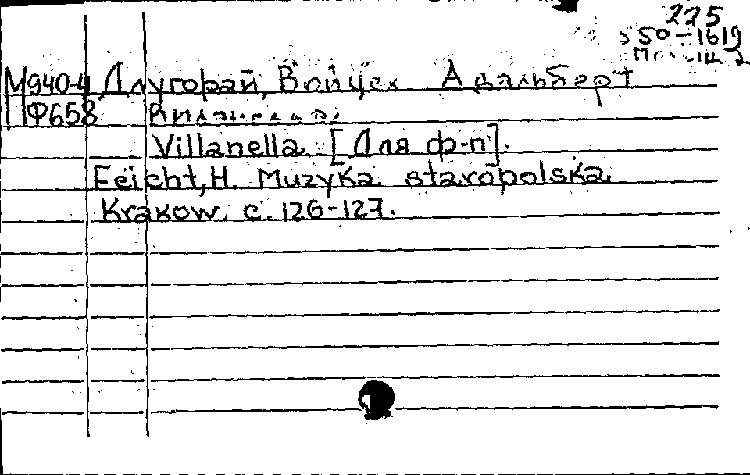 225
50-1619
М940-4 Длугорай, Войцех Адальберт
ПФ658 Виланелла;
Villanella. [Для ф-п].
Feicht, H. Muzyka staropolska.
Krakow. c. 126-127.